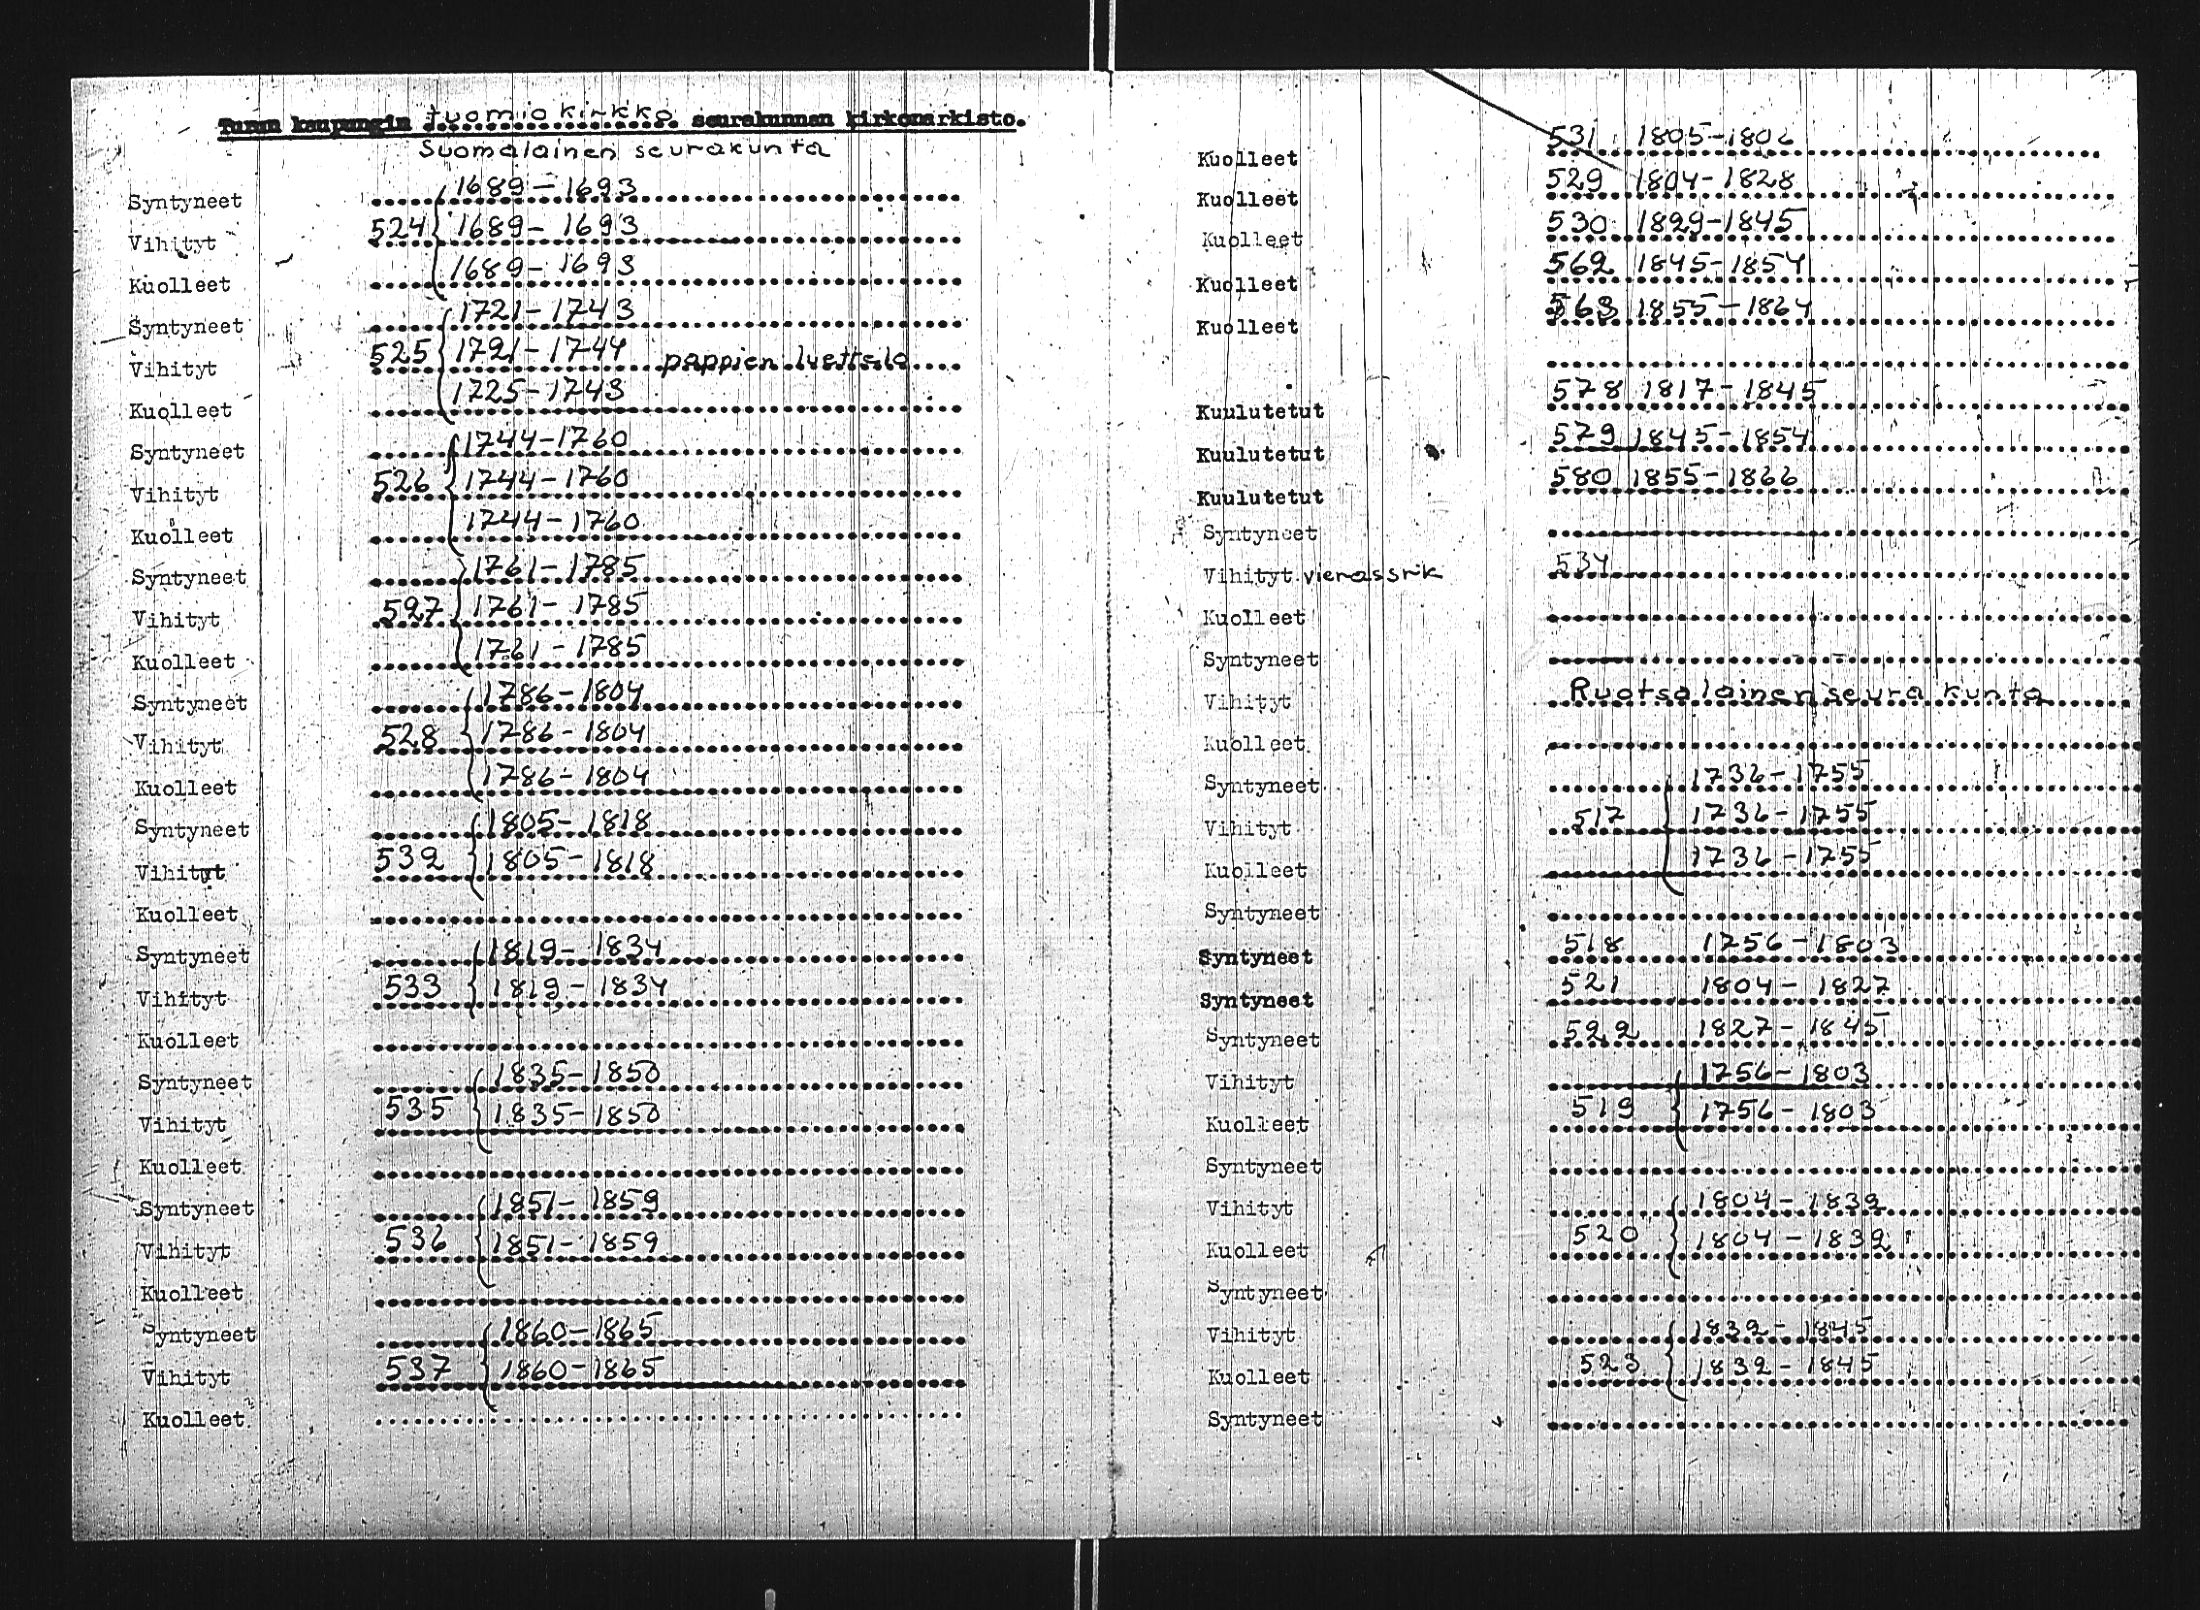 Turun kaupungin tuomiokirkko seurakunnan kirkonarkisto.
Suomalainen seurakunta
Syntyneet 1689-1693
Vihityt 524 1689-1693
Kuolleet 1689-1693
Syntyneet 1721-1743
Vihityt 525 1721-1744 pappien luettelo
Kuolleet 1725-1743
Syntyneet 1744-1760
Vihityt 526 1744-1760
Kuolleet 1744-1760
Syntyneet 1761-1785
Vihityt 527 1761-1785
Kuolleet 1761-1785
Syntyneet 1786-1804
Vihityt 528 1786-1804
Kuolleet 1786-1804
Syntyneet 1805-1818
Vihityt 532 1805-1818
Kuolleet
Syntyneet 1819-1834
Vihityt 533 1819-1834
Kuolleet
Syntyneet 1835-1850
Vihityt 535 1835-1850
Kuolleet
Syntyneet 1851-1859
Vihityt 536 1851-1859
Kuolleet
Syntyneet 1860-1865
Vihityt 537 1860-1865
Kuolleet
Kuolleet 531 1805-1806
Kuolleet 529 1804-1828
Kuolleet 530 1829-1845
Kuolleet 562 1845-1854
Kuolleet 563 1855-1864
Kuulutetut 578 1817-1845
Kuulutetut 579 1845-1854
Kuulutetut 580 1855-1866
Syntyneet
Vihityt vierassrk 534
Kuolleet
Syntyneet
Vihityt Ruotsalainen seurakunta
Kuolleet
Syntyneet 1736-1755
Vihityt 517 1736-1755
Kuolleet 1736-1755
Syntyneet
Syntyneet 518 1756-1803
Syntyneet 521 1804-1827
Syntyneet 522 1827-1845
Vihityt 1756-1803
Kuolleet 519 1756-1803
Syntyneet
Vihityt 1804-1832
Kuolleet 520 1804-1832
Syntyneet
Vihityt 1832-1845
Kuolleet 523 1832-1845
Syntyneet